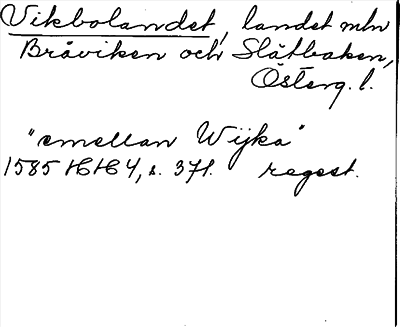 Vikbolandet, landet mln
Bråviken och Slätbaken,
Österg. l.
"emellan Wijka"
1585 HH 4, s. 371. regest.